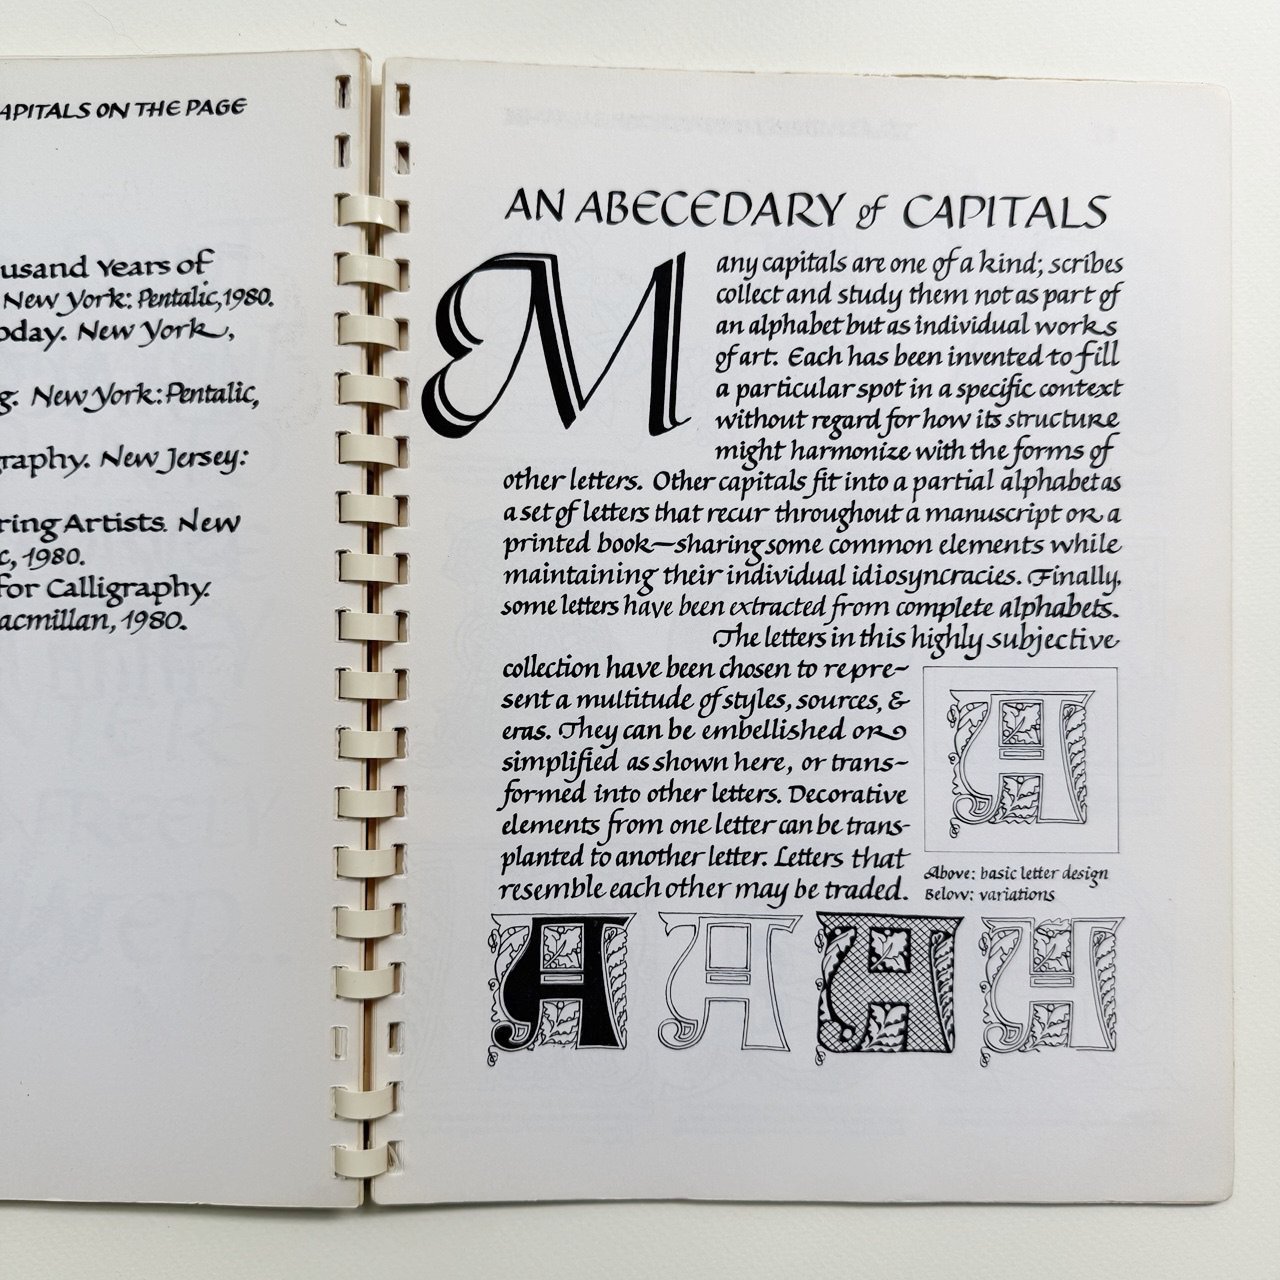 CAPITALS ON THE PAGE
Years of
New York: Pentalic, 1980.
New York,
New York: Pentalic,
New Jersey:
Artists. New
1980.
for Calligraphy.
1980.
AN ABECEDARY of CAPITALS
Many capitals are one of a kind; scribes
collect and study them not as part of
an alphabet but as individual works
of art. Each has been invented to fill
a particular spot in a specific context
without regard for how its structure
might harmonize with the forms of
other letters. Other capitals fit into a partial alphabet as
a set of letters that recur throughout a manuscript or a
printed book—sharing some common elements while
maintaining their individual idiosyncracies. Finally,
some letters have been extracted from complete alphabets.
The letters in this highly subjective
collection have been chosen to repre-
sent a multitude of styles, sources, &
eras. They can be embellished or
simplified as shown here, or trans-
formed into other letters. Decorative
elements from one letter can be trans-
planted to another letter. Letters that
resemble each other may be traded.
A
Above: basic letter design
Below: variations
A A A A